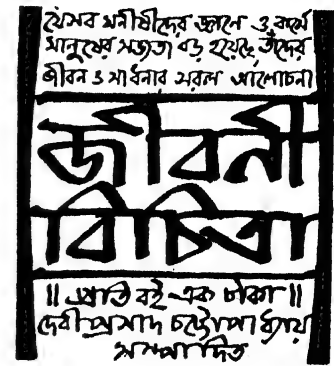 যেসব মনীষীদের জ্ঞানে ও কর্মে
মানুষের সভ্যতা বড় হয়েছে, তাঁদের
জীবন ও সাধনার সরল আলোচনা
জীবনী
বিচিত্রা
॥ প্রতি বই এক টাকা ॥
দেবীপ্রসাদ চট্টোপাধ্যায়
সম্পাদিত